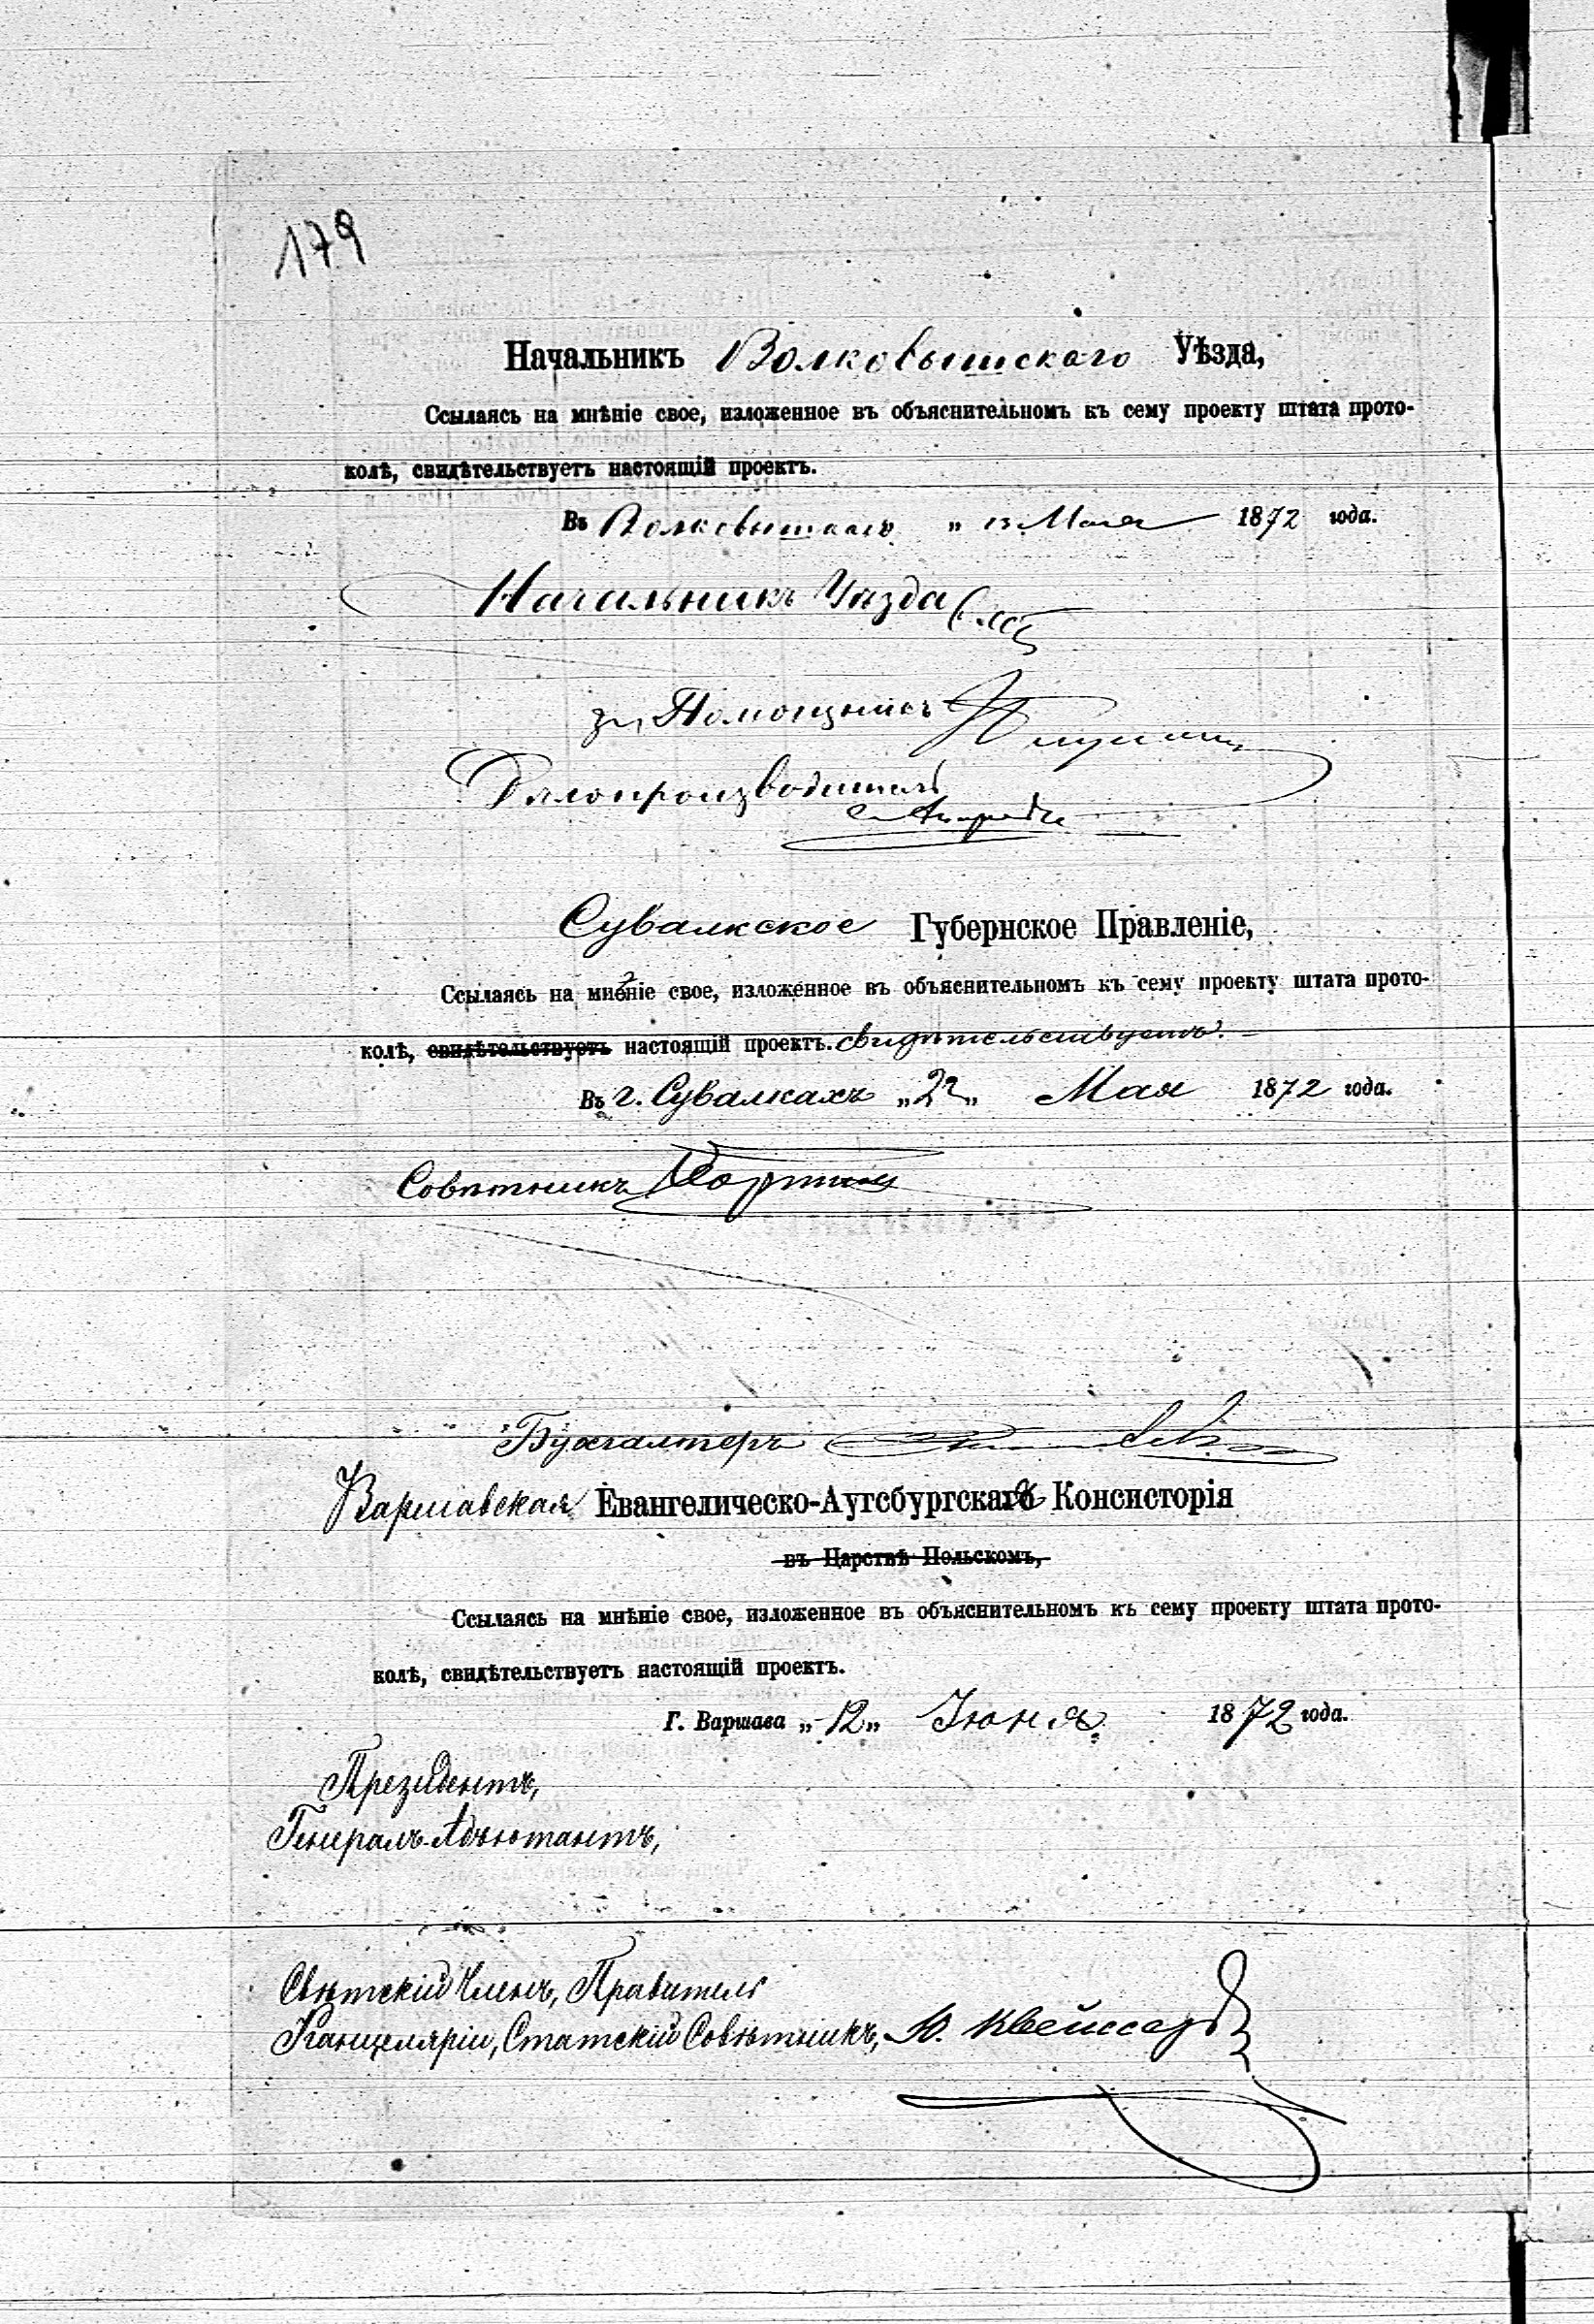 179
Начальникъ Волковышскаго Уѣзда,
Ссылаясь на мнѣніе свое, изложенное въ объяснительномъ къ сему проекту штата прото-
колѣ, свидѣтельствуетъ настоящій проектъ.
Въ Волковышкахъ „ 13 Мая 1872 года.
Начальникъ Уѣзда
Помощникъ
Дѣлопроизводитель
Сувалкское Губернское Правленіе,
Ссылаясь на мнѣніе свое, изложенное въ объяснительномъ къ сему проекту штата прото-
колѣ, свидѣтельствуетъ настоящій проектъ. свидѣтельствуетъ.
Въ г. Сувалкахъ „22„ Мая 1872 года.
Совѣтникъ
Бухгалтеръ
Варшавская Евангелическо-Аугсбургская Консисторія
въ Царствѣ Польскомъ,
Ссылаясь на мнѣніе свое, изложенное въ объяснительномъ къ сему проекту штата прото-
колѣ, свидѣтельствуетъ настоящій проектъ.
Г. Варшава „12„ Іюня 1872 года.
Президентъ,
Генералъ-Адъютантъ,
Свѣтскій Членъ, Правитель
Канцеляріи, Статскій Совѣтникъ,